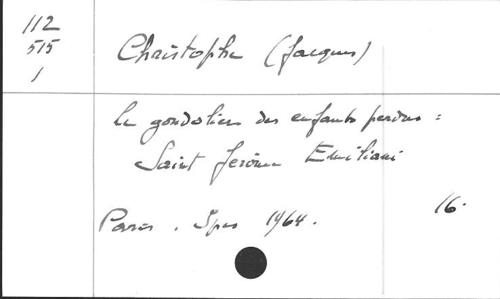 112
515
1
Christophe (Jacques)
Le gondolier des enfants perdus :
Saint Jérôme Emiliani
Paris. Spes 1964.
16.